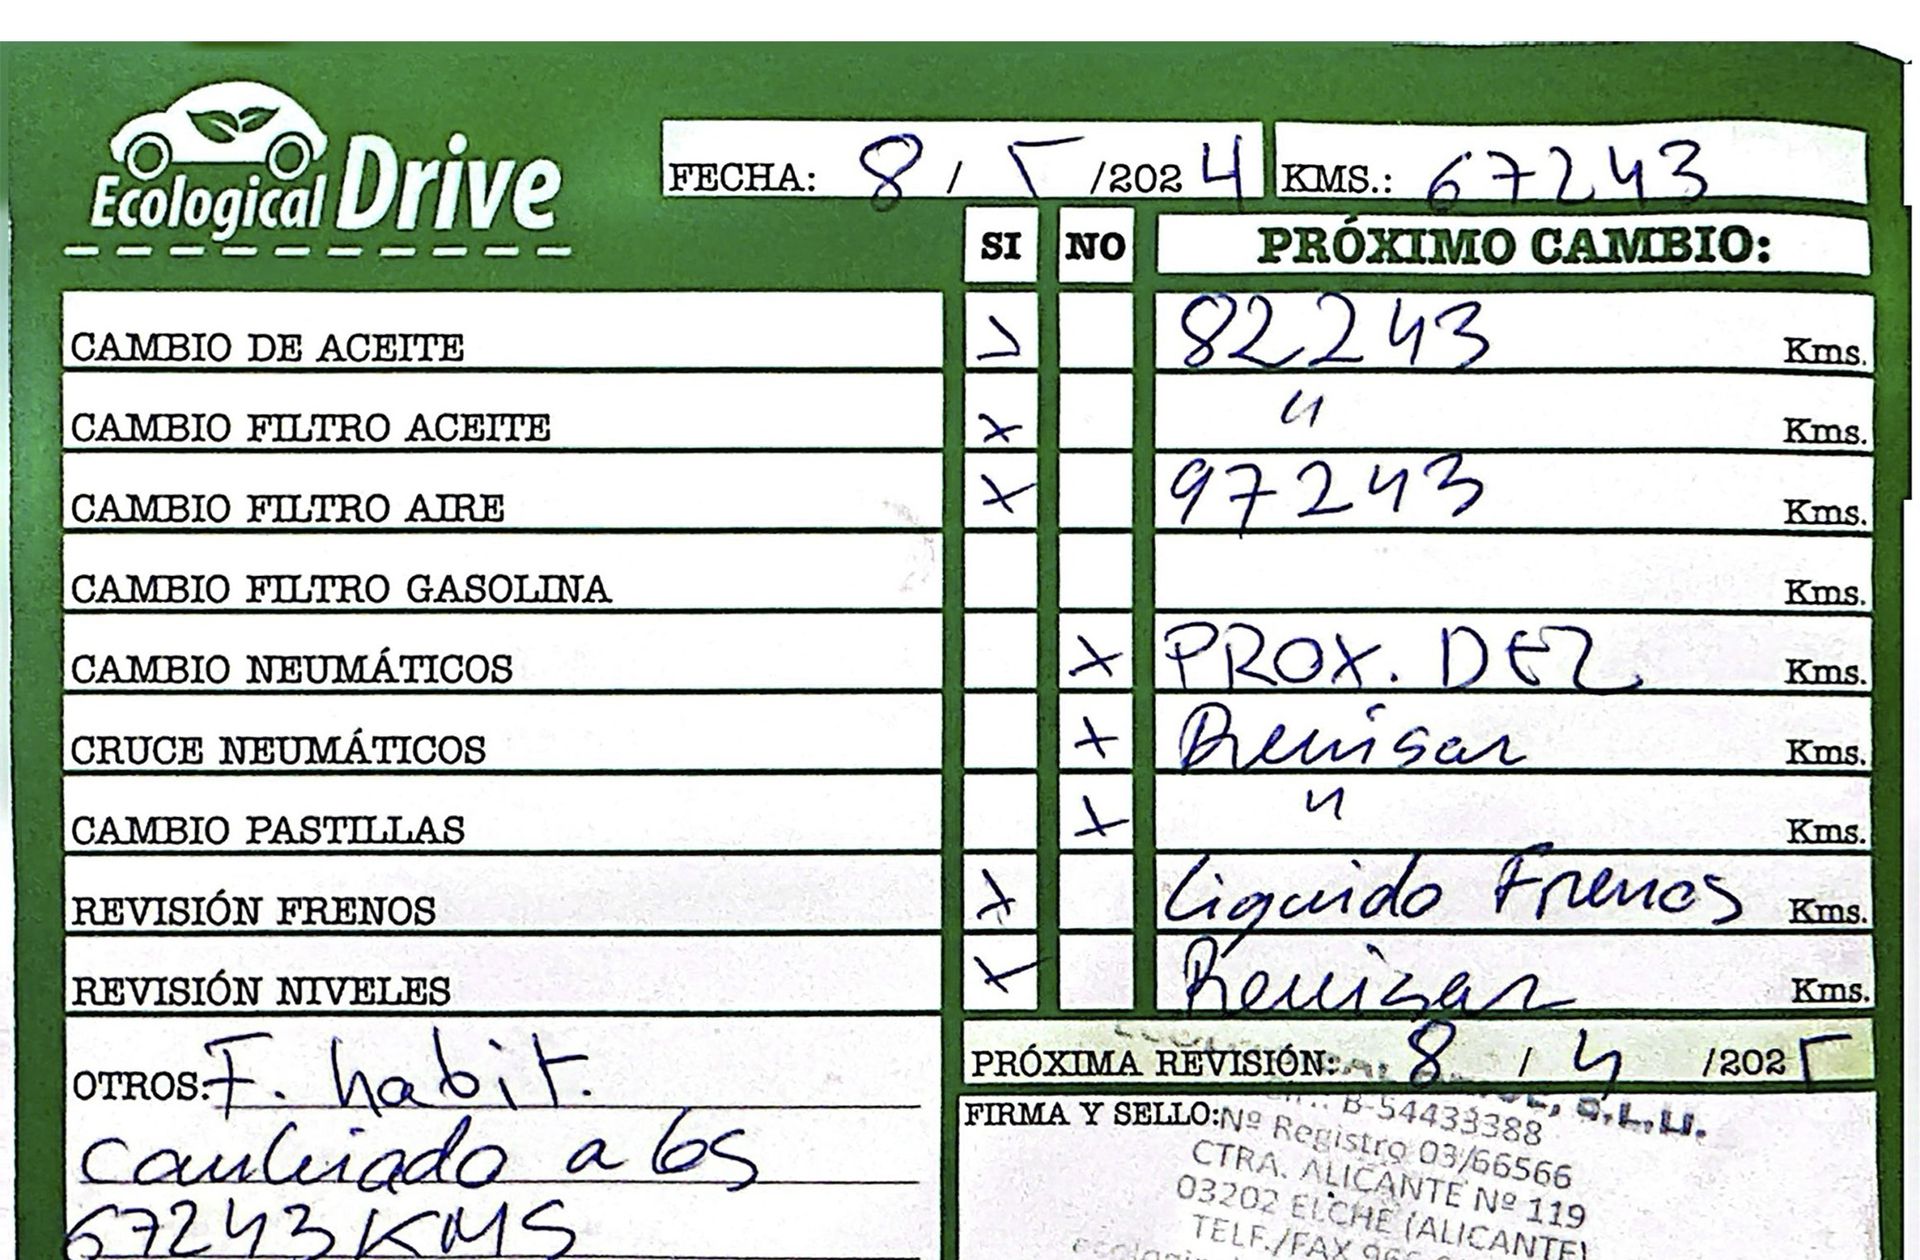 Ecological Drive
FECHA: 8 / 5 /2024 KMS.: 67243
SI NO PRÓXIMO CAMBIO:
CAMBIO DE ACEITE 82243 Kms.
CAMBIO FILTRO ACEITE x " Kms.
CAMBIO FILTRO AIRE x 97243 Kms.
CAMBIO FILTRO GASOLINA Kms.
CAMBIO NEUMÁTICOS x PROX. DEL. Kms.
CRUCE NEUMÁTICOS x Revisar Kms.
CAMBIO PASTILLAS x " Kms.
REVISIÓN FRENOS x Liquido Frenos Kms.
REVISIÓN NIVELES x Revisar Kms.
PRÓXIMA REVISIÓN: 8 / 4 /2025
OTROS: F. habit.
cambiado a los
67243 KMS
FIRMA Y SELLO:
S.L.U.
B-54433388
Nº Registro 03/66566
CTRA. ALICANTE Nº 119
03202 ELCHE (ALICANTE)
TELF./FAX 96